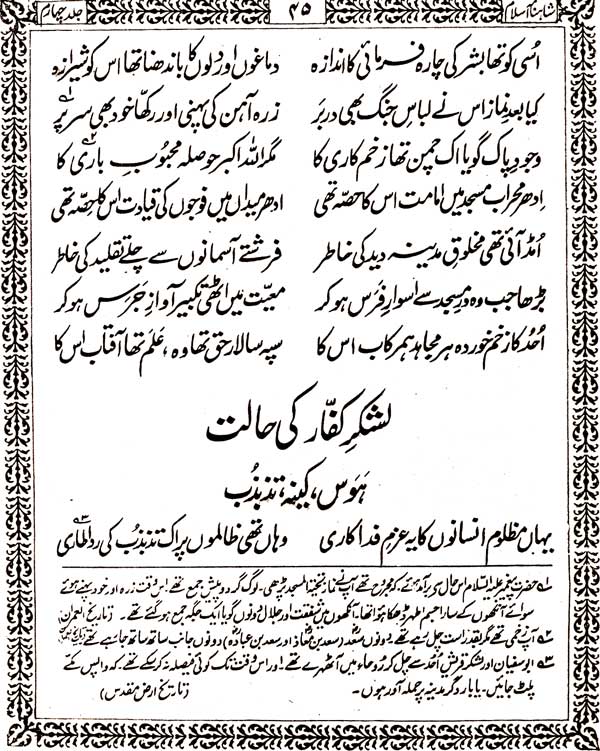 شاہنامۂ اسلام ۴۵ جلد چہارم
اُسی کو تھا بشر کی چارہ فرمائی کا اندازہ دماغوں اور دلوں کا باندھنا تھا اس کو شیرازہ
کیا بعدِ نماز اس نے لباسِ جنگ بھی در بَر زرہ آہن کی پہنی اور رکھا خود بھی سر پر ۱؎
وجودِ پاک گویا اک چمن تھا زخم کاری کا مگر اللہ اکبر حوصلہ محبوبِ باری کا ۲؎
اِدھر محراب مسجد میں امامت اس کا حصہ تھی ادھر میداں میں فوجوں کی قیادت اس کا حصہ تھی
اُمڈ آئی تھی مخلوقِ مدینہ دید کی خاطر فرشتے آسمانوں سے چلے تقلید کی خاطر
بڑھا جب وہ درِ مسجد سے اسوارِ فَرَس ہو کر معیّت میں اٹھی تکبیر آوازِ جَرَس ہو کر
اُحُد کا زخم خوردہ ہر مجاہد ہمرکاب اس کا سپہ سالارِ حق تھا وہ، عَلَم تھا آفتاب اس کا
لشکرِ کفّار کی حالت
ہَوَس، کینہ، تذبذُب
یہاں مظلوم انسانوں کا یہ عزمِ فداکاری وہاں تھی ظالموں پر اک تذبذُب کی ردا طاری ۳؎
۱؎ حضرت پیغمبر علیہ السلام اس حال میں برآمد ہوئے، کہ مجروح تھے آپ نے نماز تحیۃ المسجد پڑھی۔ لوگ گرد و پیش جمع تھے۔ اس وقت زرہ اور خود پہنے ہوئے
سوائے آنکھوں کے سارا جسم اطہر ڈھکا ہوا تھا۔ آنکھوں میں شفقت اور جلال دونوں گویا ایک جگہ جمع ہو گئے تھے۔ (تاریخ العمران)
۲؎ آپ زخمی تھے مگر بقدر راست چل رہے تھے، دونوں سعد (سعد بن معاذ اور سعد بن عبادہ) دونوں جانب ساتھ ساتھ جا رہے تھے
۳؎ ابو سفیان اور لشکر قریش اُحد سے چل کر رَوحا میں آ ٹھہرے تھے۔ اور اس وقت تک کوئی فیصلہ نہ کر سکے تھے، کہ واپس مکے
پلٹ جائیں۔ یا بار دگر مدینہ پر حملہ آور ہوں۔ (تاریخ ارض مقدس)